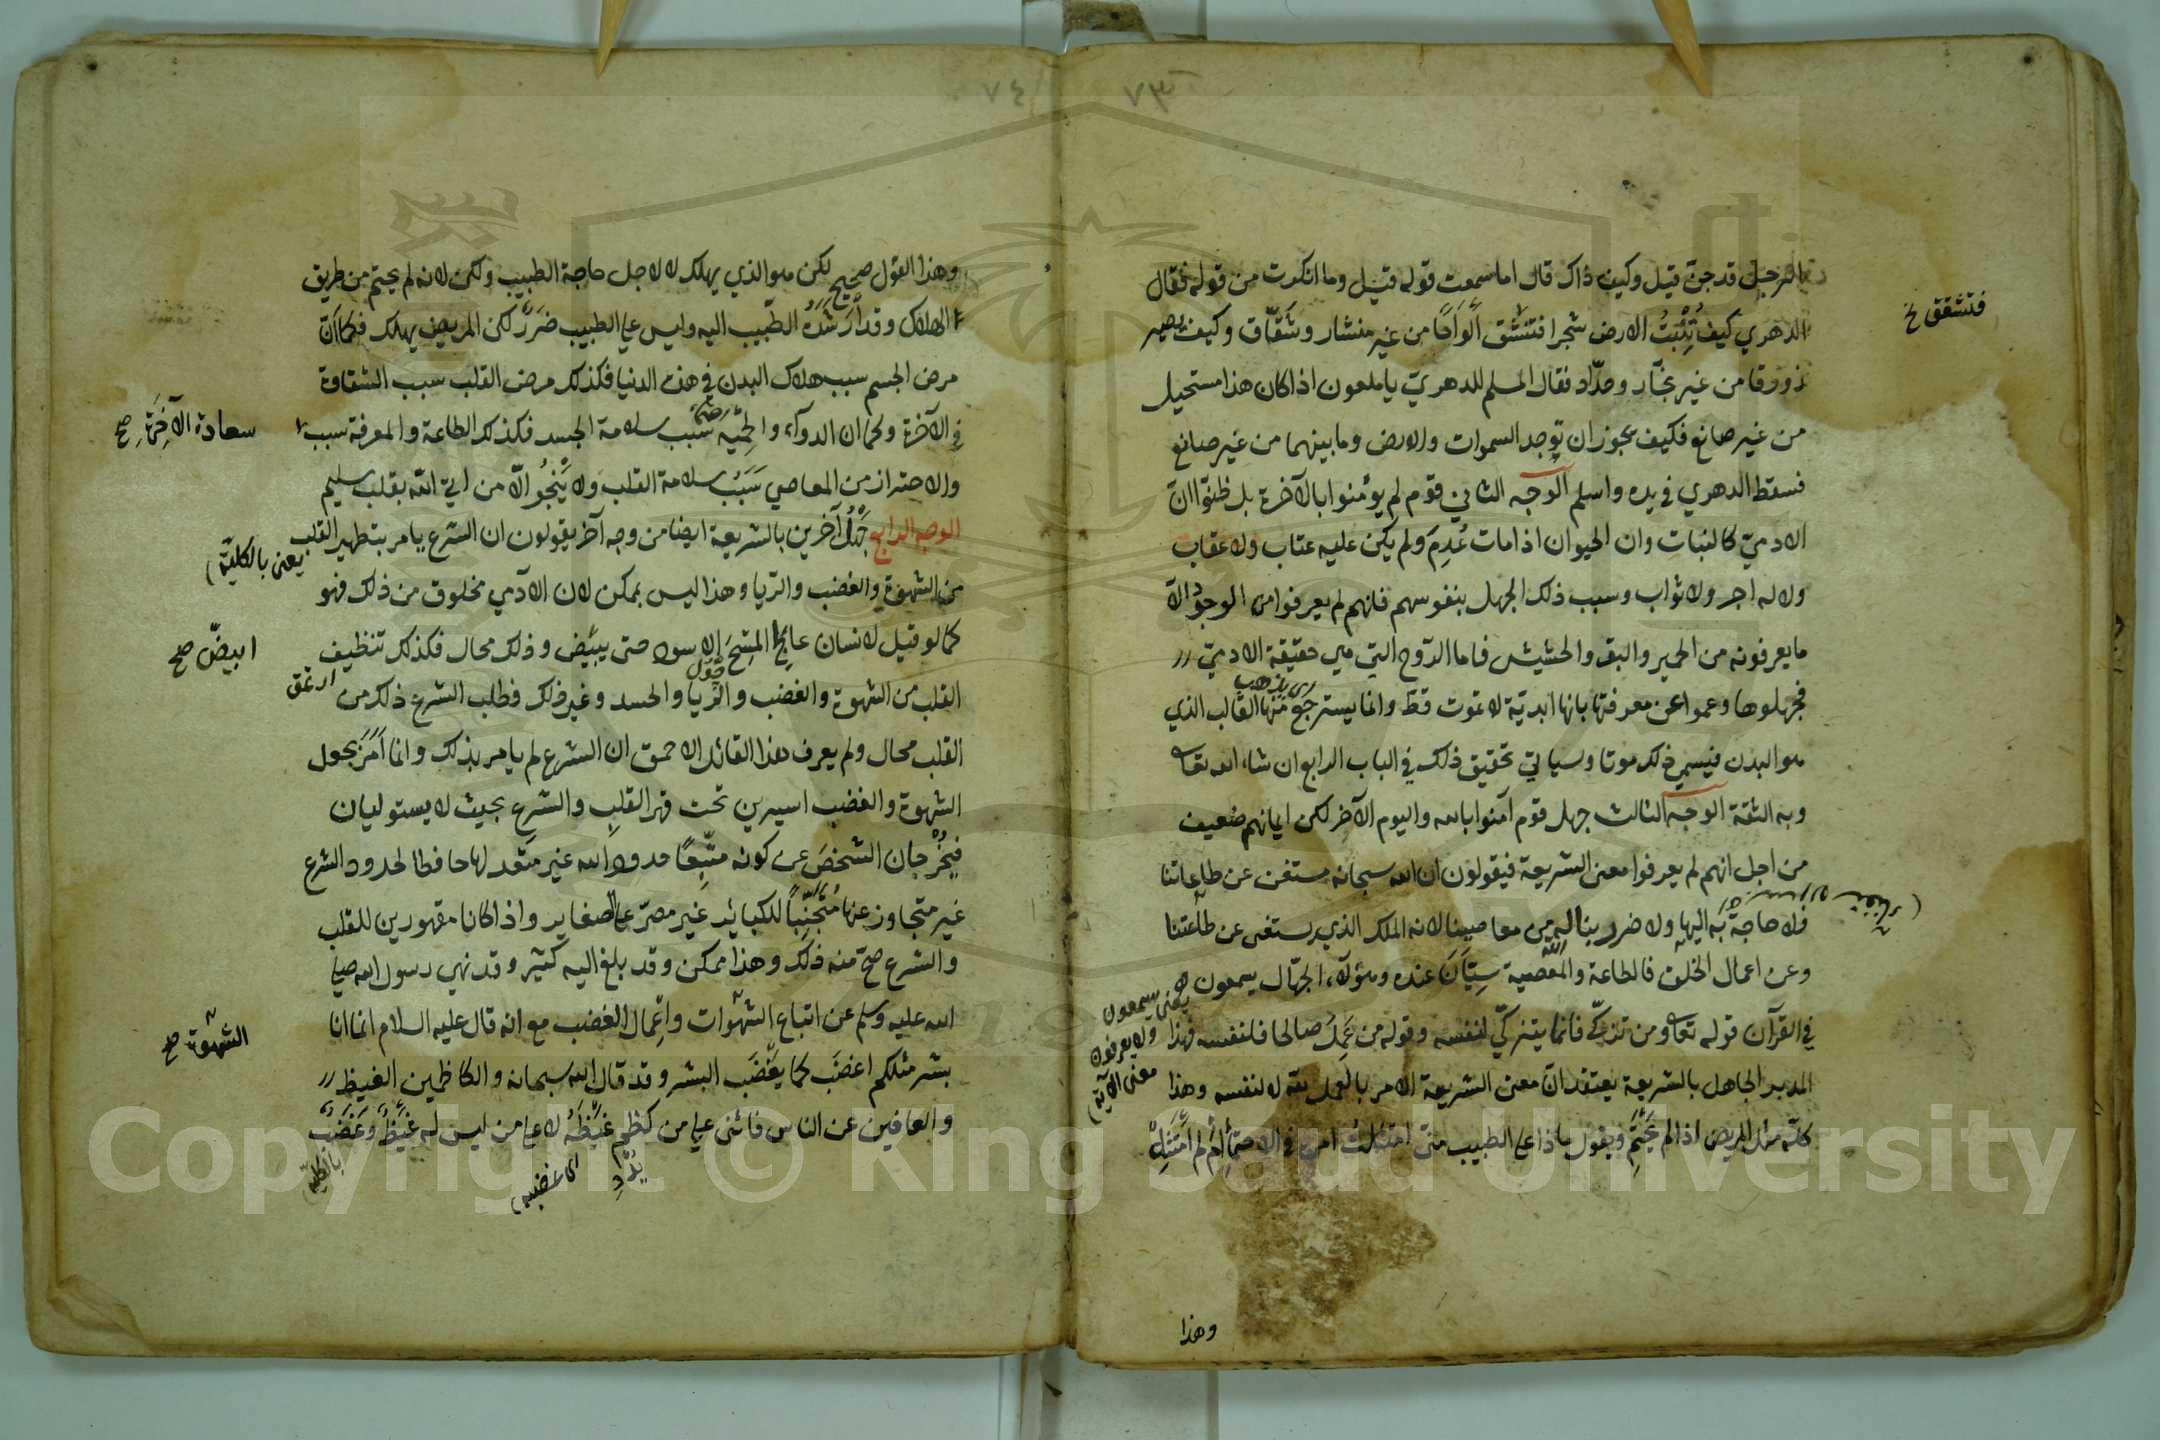 ٧٣
الرجل قد جنّ قيل وكيف ذاك قال اما سمعت قوله قيل وما انكرت من قوله فقال
الدهري كيف تُنْبِتُ الارض شجرا فتنشق ألواحًا من غير منشار وشَقّاق وكيف يصير
زورقا من غير نجّار وحدّاد فقال المسلم للدهريّ يا ملعون اذا كان هذا مستحيل
من غير صانع فكيف يجوز ان توجد السموات والارض وما بينهما من غير صانع
فسقط الدهري في يده واسلم الوجه الثاني قوم لم يؤمنوا بالآخرة بل ظنوا انّ
الادميّ كالنبات وان الحيوان اذا مات عُدِمَ ولم يكن عليه عتاب ولا عقاب
ولا له اجر ولا ثواب وسبب ذلك الجهل بنفوسهم فانهم لم يعرفوا من الوجود الّا
ما يعرفونه من الحمير والبقر والحشيش فاما الرّوح التي هي حقيقة الادميّ
فجهلوها وعموا عن معرفتها بانها ابديّة لا تموت قطّ وانما يسترجع منها القالب الذي
هو البدن فيسمي ذلك موتا وسياتي تحقيق ذلك في الباب الرابع ان شاء الله تعا
وبه الثقة الوجه الثالث جهل قوم آمنوا بالله واليوم الآخر لكن ايمانهم ضعيف
من اجل انهم لم يعرفوا معنى الشريعة فيقولون ان الله سبحانه مستغن عن طاعاتنا
فلا حاجة به اليها ولا ضرر ينالـه من معاصينا لانه الملك الذي يستغنى عن طاعتنا
وعن اعمال الخلق فالطاعة والمعصية سِيّانَ عنده وهؤلاء الجهّال يسمعون
في القرآن قوله تعا ومن تزكّى فانما يتزكّي لنفسه وقوله من عَمِلَ صالحا فلنفسه فهذا
المدبر الجاهل بالشريعة يعتقد انّ معنى الشريعة الامر بالعمل لله لا لنفسه وهذا
كلّه مثل المريض اذا لم يَحْتَمِ ويقول ماذا على الطبيب متى امتثلتُ امره في الاحتماء أم لم أمتثل
فتشقق خ
يعنى يسمعون
ولا يعرفون
معنى الآية
وهذا
٧٤
وهذا القول صحيح لكن هو الذي يهلك لا لاجل حاجة الطبيب ولكن لانه لم يحتم من طريق
الهلاك وقد أرشَدَهُ الطّبيب اليه وليس على الطبيب ضَرَرٌ لكن المريض يهلك فكما انّ
مرض الجسم سبب هلاك البدن في هذه الدنيا فكذلك مرض القلب سبب الشقاوة
في الآخرة وكما ان الدوآء والحِمْيَة سبب سلامة الجسد فكذلك الطاعة والمعرفة سبب
والاحتراز من المعاصي سَبَبُ سلامة القلب ولا يَنْجُو الّا من اتى الله بقلب سليم
الوجه الرابع جَهْلُ آخرين بالشريعة ايضا من وجه آخر يقولون ان الشرع يامر بتطهير القلب
من الشهوة والغضب والرّيا وهذا ليس بممكن لان الآدمي مخلوق من ذلك فهو
كما لو قيل لانسان عالِجِ المِسْحَ الاسود حتى يبيض وذلك محال فكذلك تنظيف
القلب من الشهوة والغضب والرّيا والحسد وغير ذلك فطلب الشرع ذلك من
القلب محال ولم يعرف هذا القائل الاحمق ان الشرع لم يامر بذلك وانما أمَرَ بجعل
الشهوة والغضب اسيرين تحت قهر القلبِ والشرعِ بحيث لا يستوليان
فيُخْرِجان الشخصَ عن كونه متّبِعًا حدود الله غير متعد لها حافظا لحدود الشرع
غير متجاوز عنها مُتَجَنِّبًا للكبائر غير مصرّ على الصغاير واذا كانا مقهورين للقلب
والشرع صحّ منه ذلك وهذا ممكن وقد بلغ اليه كثير وقد نهى رسول الله صلى
الله عليه وسلم عن اتباع الشهوات واعمال الغضب مع انه قال عليه السلام انما انا
بشر مثلكم اغضَب كما يَغْضَب البشر وقد قال الله سبحانه والكاظمين الغيظ
والعافين عن الناس فاثنى على من كظم غيظَهُ لا على من ليس له غيظٌ وغضبٌ
سعادة الآخِرَةِ صح
يعنى بالكلية
ابيضّ صح
الشهوة صح
اى غضبه
بالكلية